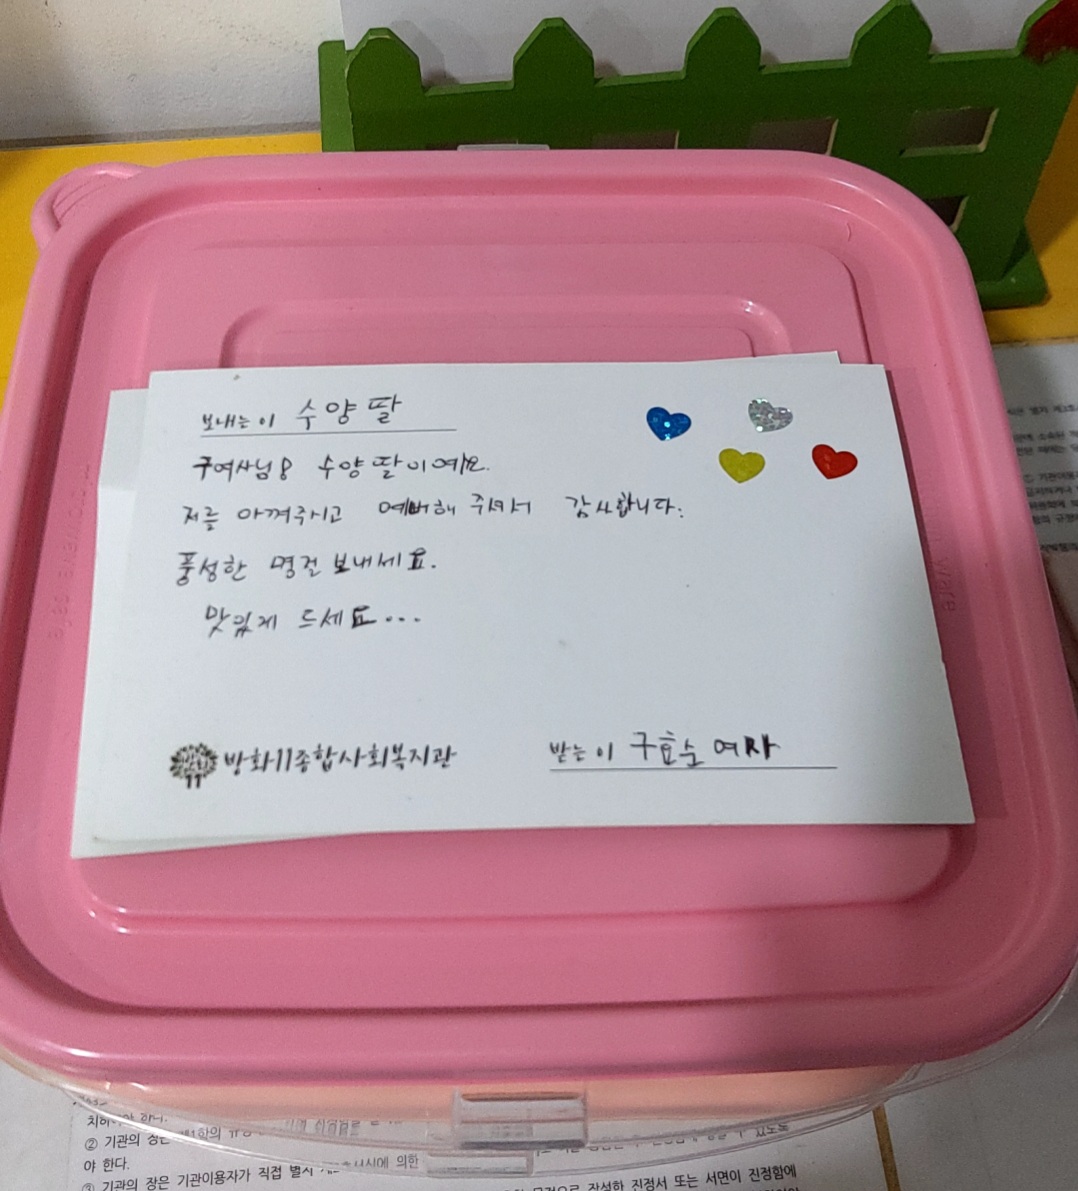 보내는 이 수양딸
구여사님 8 수양딸이예요.
저를 아껴주시고 예뻐해 주셔서 감사합니다.
풍성한 명절 보내세요.
맛있게 드세요...
방화11종합사회복지관
받는 이 구효순 여사
② 기관의 장은
야 한다.
③ 기관의 장은 기관이용자가 직접 별지
작성한 진정서 또는 서면이 진정함에